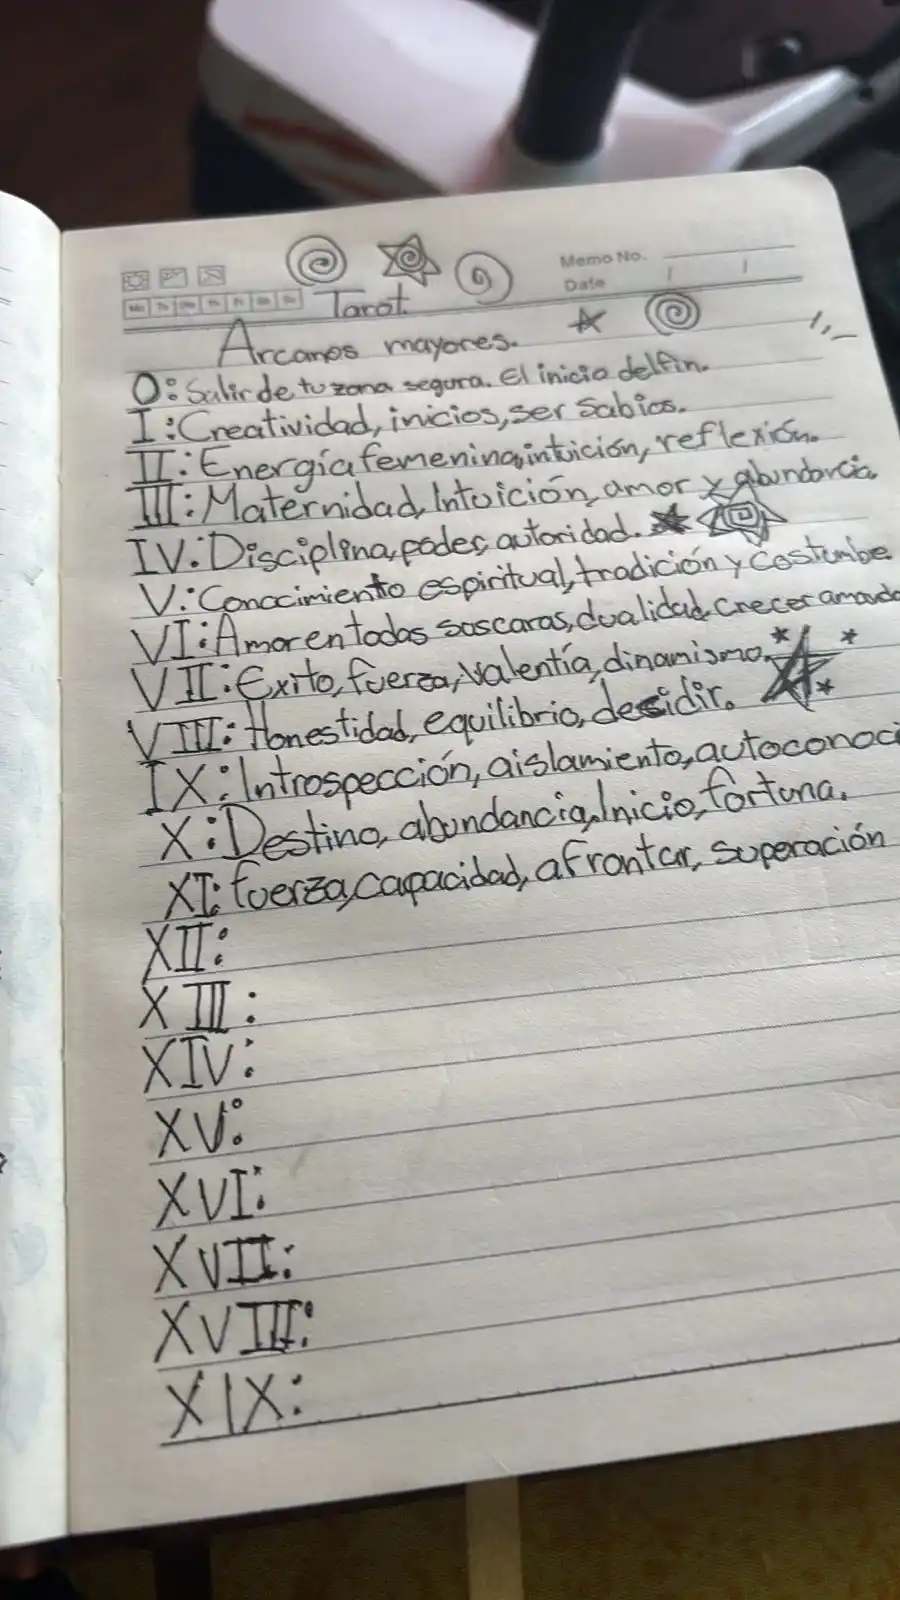 Memo No.
Mo Tu We Th Fr Sa Su
Date / /
Tarot.
Arcanos mayores.
O: Salir de tu zona segura. El inicio del fin.
I: Creatividad, inicios, ser sabios.
II: Energía femenina, intuición, reflexión.
III: Maternidad, Intuición, amor y abundancia,
IV: Disciplina, poder, autoridad.
V: Conocimiento espiritual, tradición y costumbe
VI: Amor en todas sus caras, dualidad, crecer amando
VII: Exito, fuerza, valentía, dinamismo.
VIII: Honestidad, equilibrio, decidir.
IX: Introspección, aislamiento, autoconoci
X: Destino, abundancia, Inicio, fortuna.
XI: fuerza, capacidad, afrontar, superación
XII:
XIII:
XIV:
XV:
XVI:
XVII:
XVIII:
XIX: